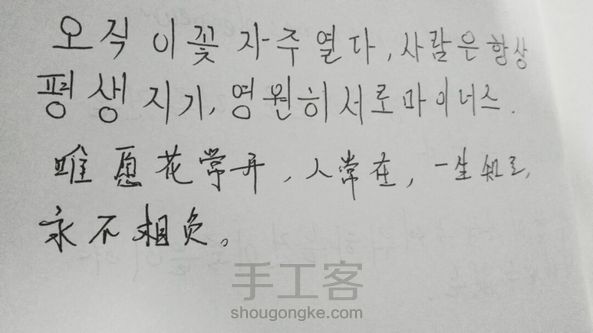 오직 이 꽃 자주 열다, 사람은 항상
평생 지기, 영원히 서로 마이너스.
唯愿花常开，人常在，一生知己，
永不相负。
手工客
shougongke.com